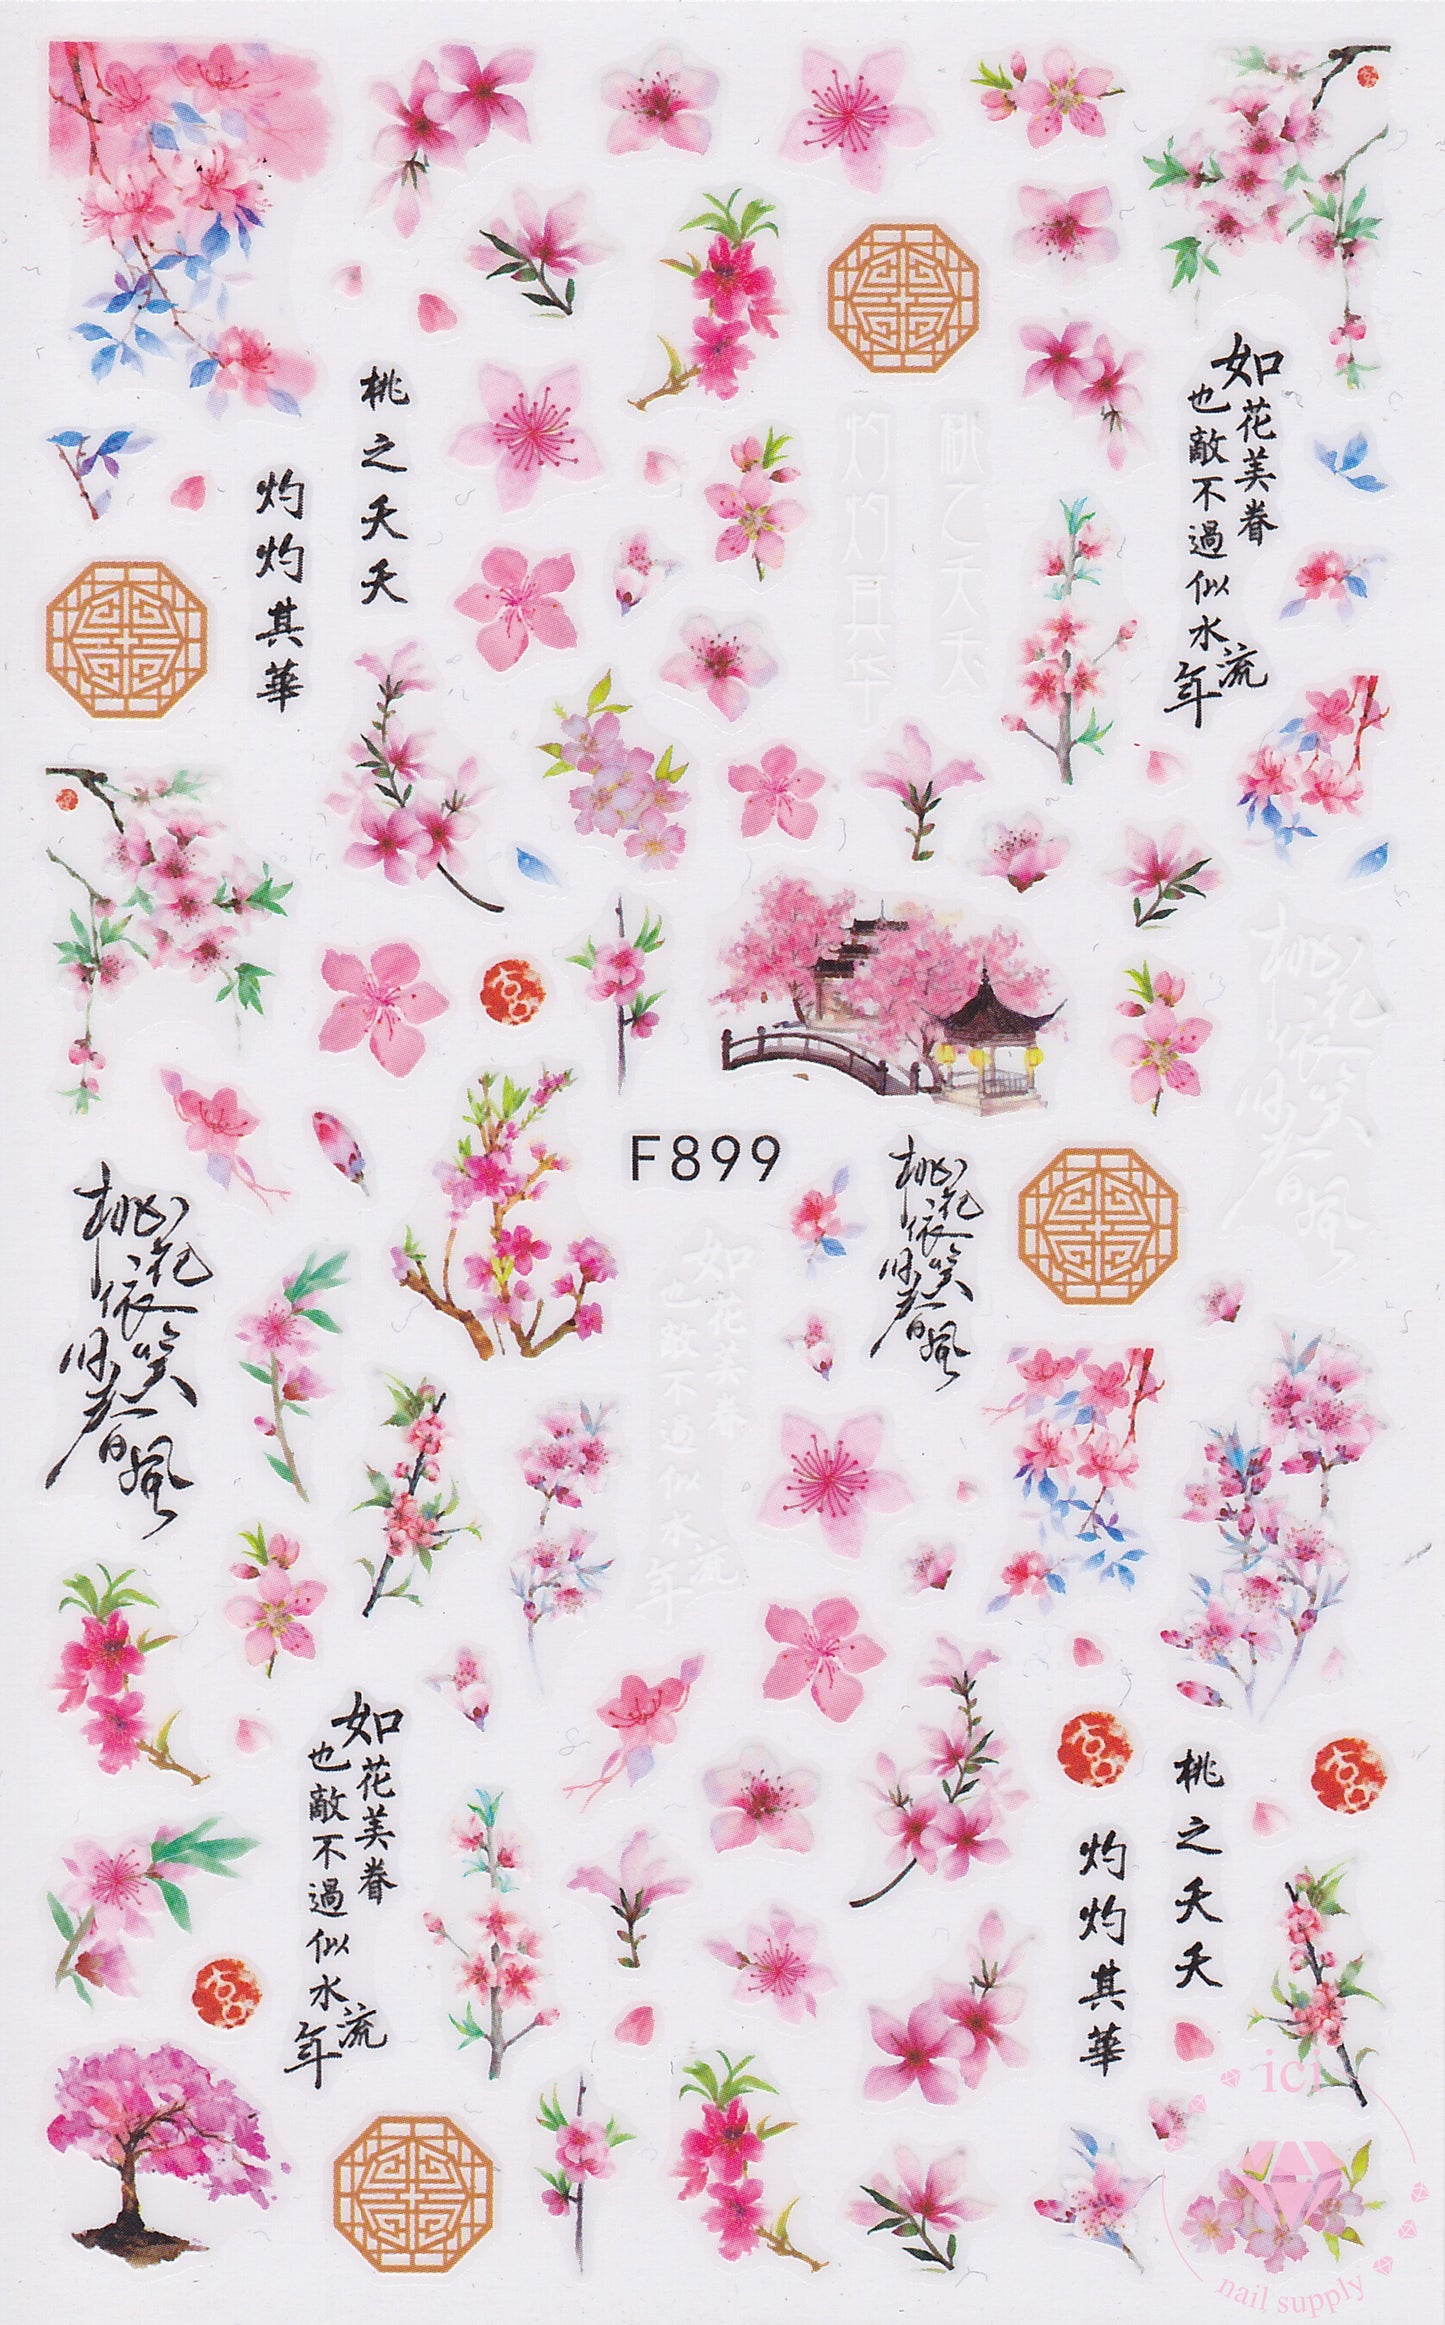 桃之夭夭
灼灼其華
如花美眷
也敵不過似水流年
桃之夭夭
灼灼其华
桃花依笑
旧春風
F899
桃花依笑
旧春風
桃花依笑
旧春風
如花美眷
也敵不過似水流年
如花美眷
也敵不過似水流年
桃之夭夭
灼灼其華
ici
nail supply